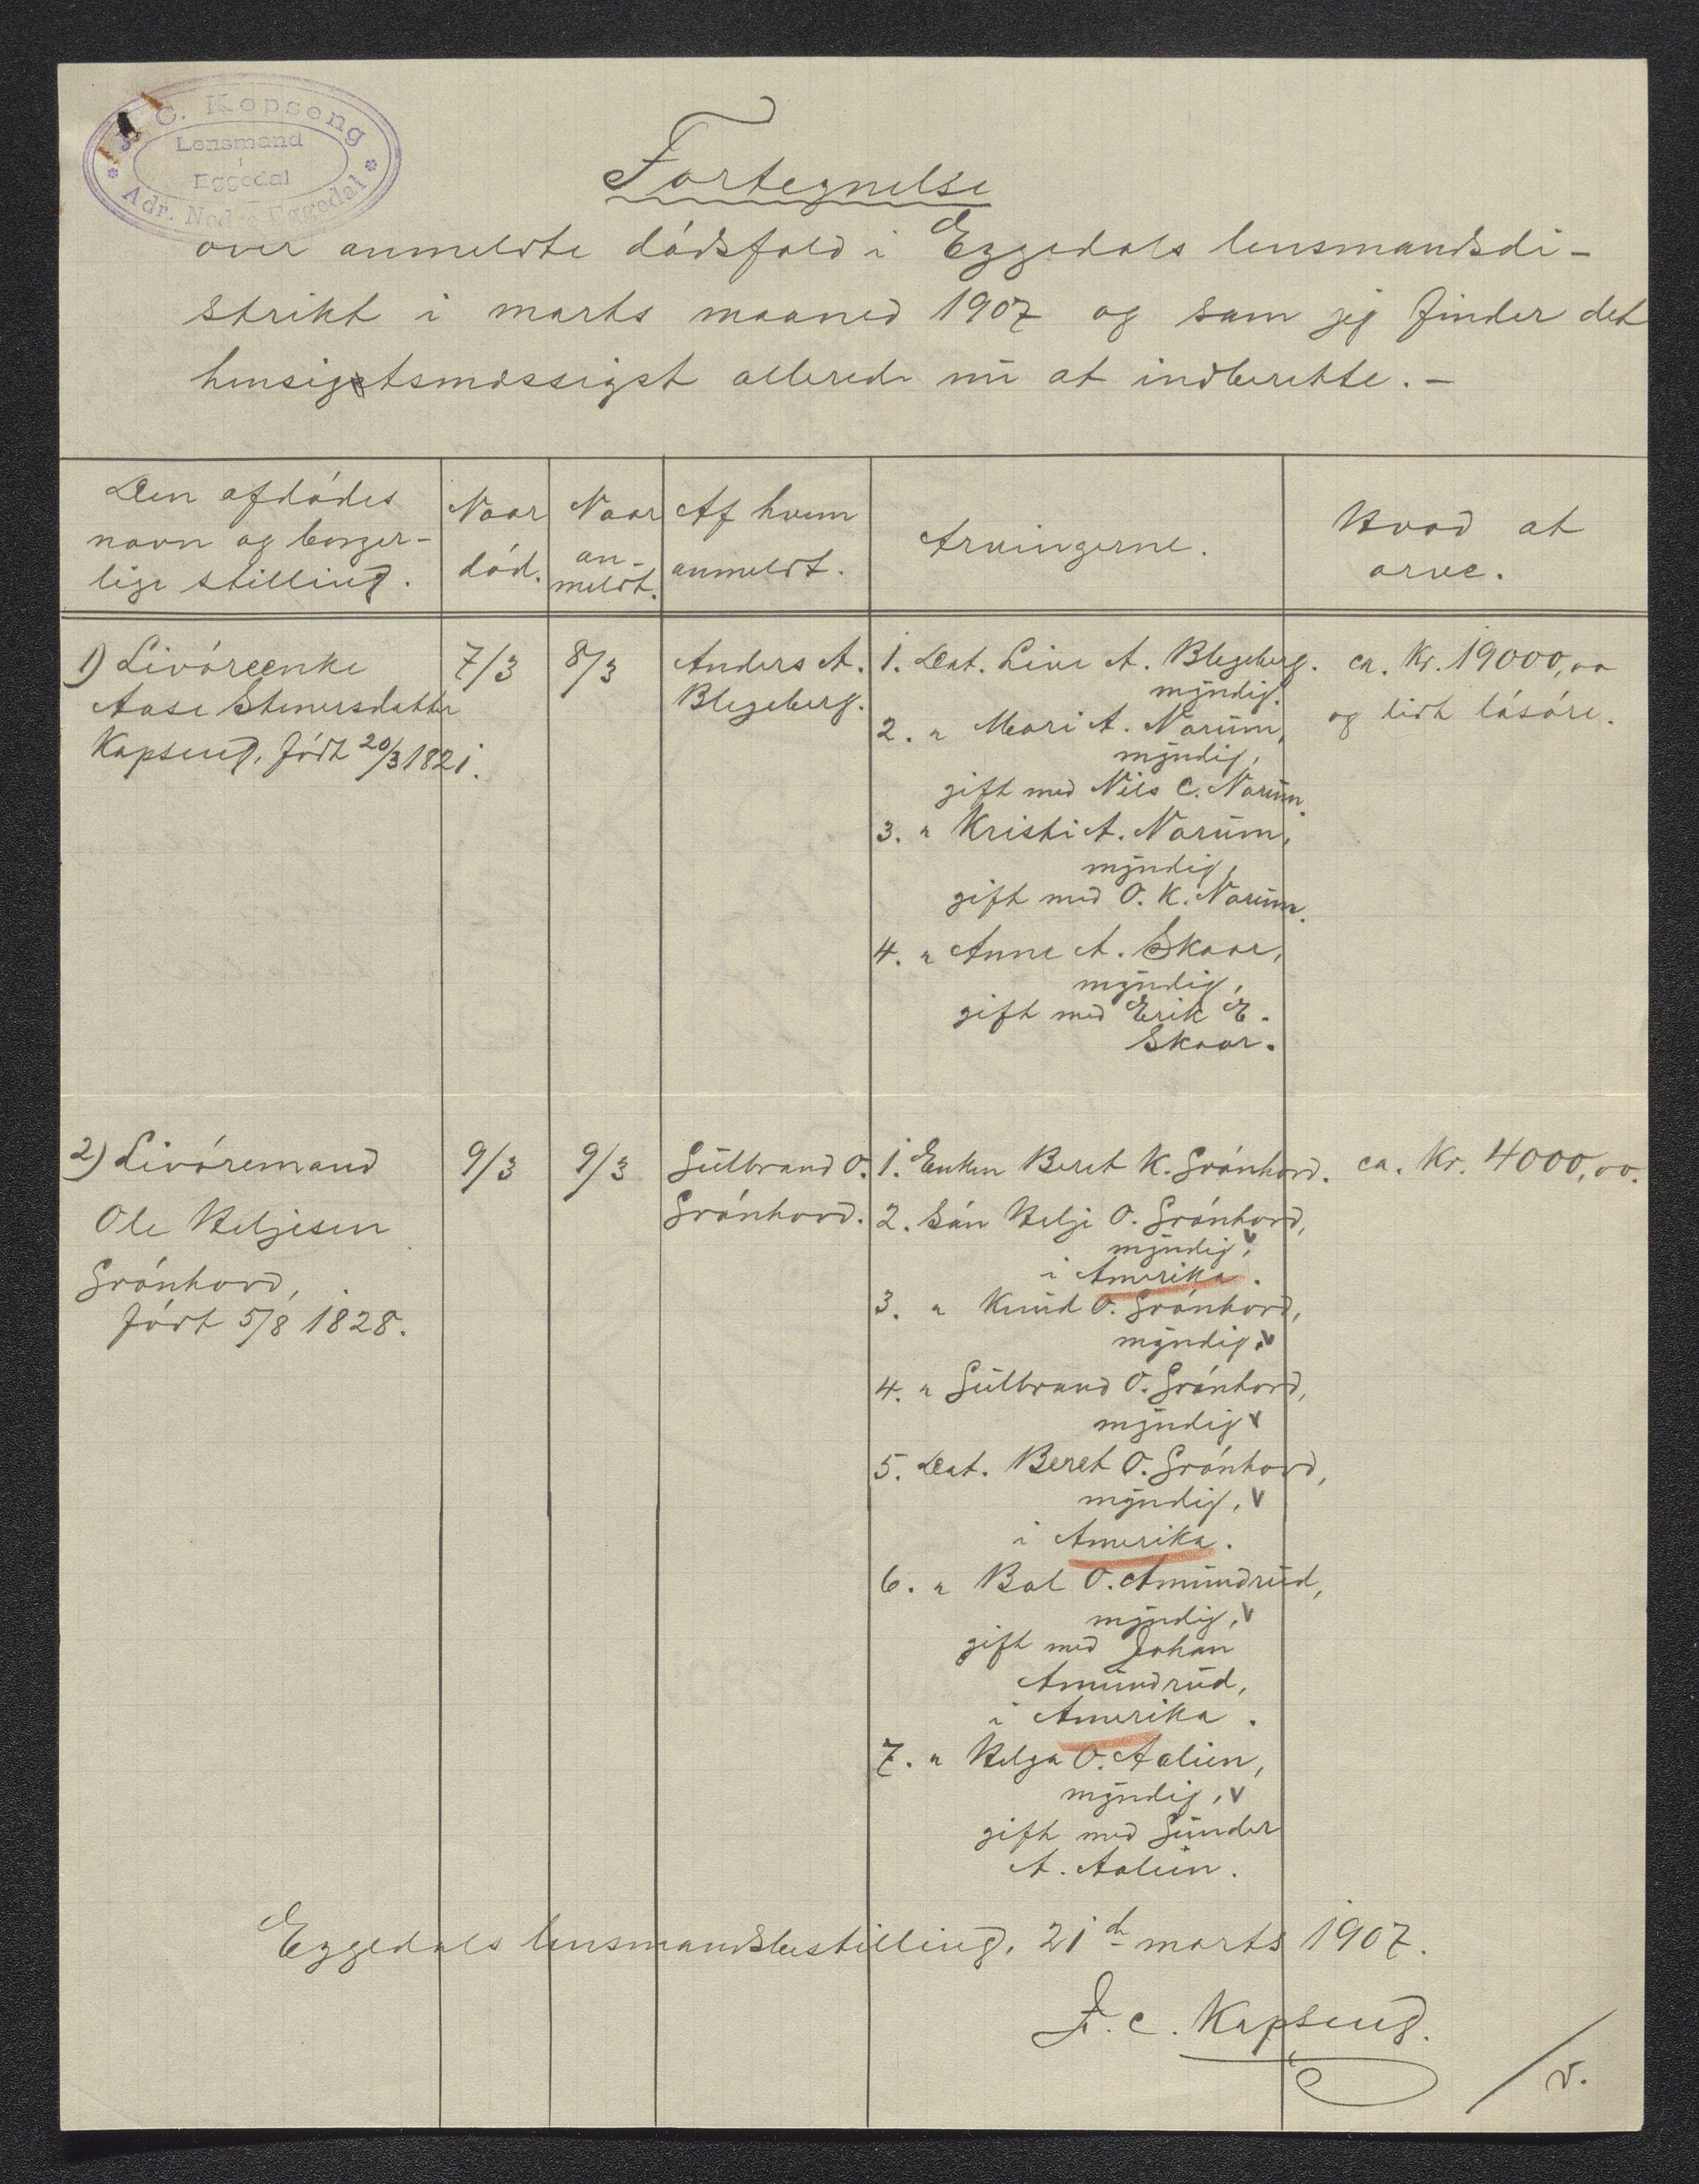 C. Kopseng
Lensmand
i
Eggedal
Adr. Nedre Eggedal
Fortegnelse
over anmeldte dódsfald i Eggedals lensmandsdi-
strikt i marts maaned 1907 og som jeg finder det
hensigtsmæssigst allerede nu at indberette. -
Den afdódes
navn og borger-
lige stilling.
Naar
dód.
Naar
an-
meldt.
Af hvem
anmeldt.
Arvingerne.
Hvad at
arve.
1) Livóreenke
Aase Stenersdatter
Kopseng, fódt 20/3 1821.
7/3
8/3
Anders A.
Blegeberg.
1. Dat. Live A. Blegeberg.
myndig.
2. " Mari A. Narum,
myndig,
gift med Nils C. Narum.
3. " Kristi A. Narum,
myndig,
gift med O. K. Narum.
4. " Anne A. Skaar,
myndig,
gift med Erik E.
Skaar.
ca. Kr. 19000,00
og lidt lósóre.
2) Livóremand
Ole Heljesen
Grónhovd,
fódt 5/8 1828.
9/3
9/3
Gulbrand O.
Grónhovd.
1. Enken Beret K. Grónhovd.
2. Són Helje O. Grónhovd,
myndig, v
i Amerika.
3. " Knud O. Grónhovd,
myndig. v
4. " Gulbrand O. Grónhovd,
myndig v
5. Dat. Beret O. Grónhovd,
myndig, v
i Amerika.
6. " Bol O. Amundrud,
myndig, v
gift med Johan
Amundrud,
i Amerika.
7. " Helga O. Aalien,
myndig, v
gift med Gunder
A. Aalien.
ca. Kr. 4000,00.
Eggedals lensmandsbestilling, 21de marts 1907.
F. C. Kopseng.
/v.